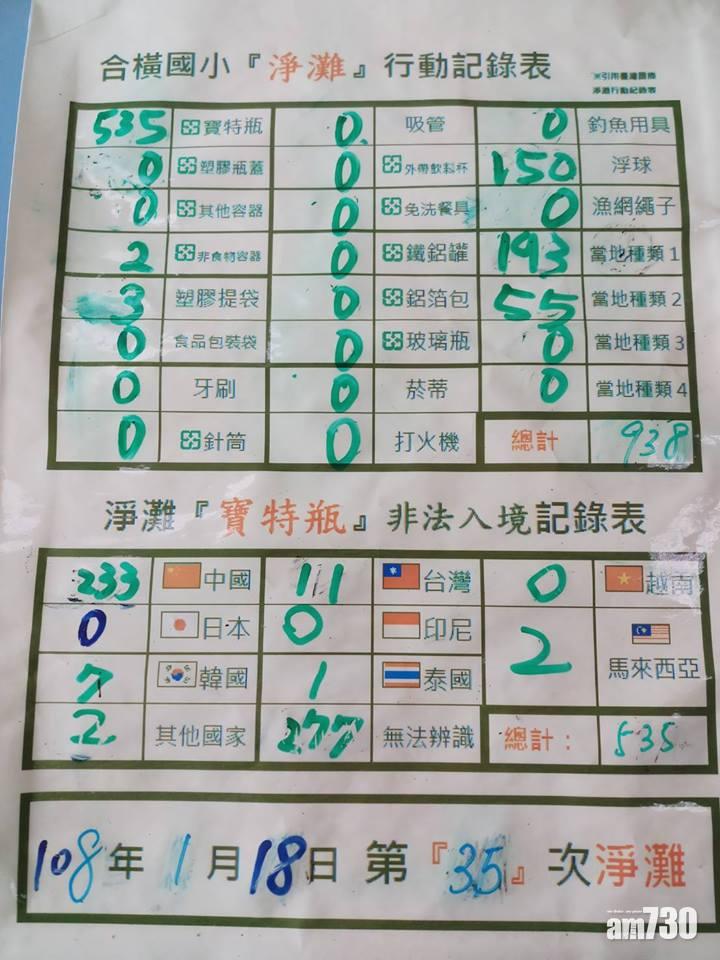 合橫國小『淨灘』行動記錄表
※引用臺灣國際
淨灘行動紀錄表
535 寶特瓶 0 吸管 0 釣魚用具
0 塑膠瓶蓋 0 外帶飲料杯 150 浮球
0 其他容器 0 免洗餐具 0 漁網繩子
2 非食物容器 0 鐵鋁罐 193 當地種類1
3 塑膠提袋 0 鋁箔包 55 當地種類2
0 食品包裝袋 0 玻璃瓶 0 當地種類3
0 牙刷 0 菸蒂 0 當地種類4
0 針筒 0 打火機 總計 938
淨灘『寶特瓶』非法入境記錄表
233 中國 11 台灣 0 越南
0 日本 0 印尼 2 馬來西亞
7 韓國 1 泰國
2 其他國家 277 無法辨識 總計： 535
108年1月18日 第『35』次淨灘
am730